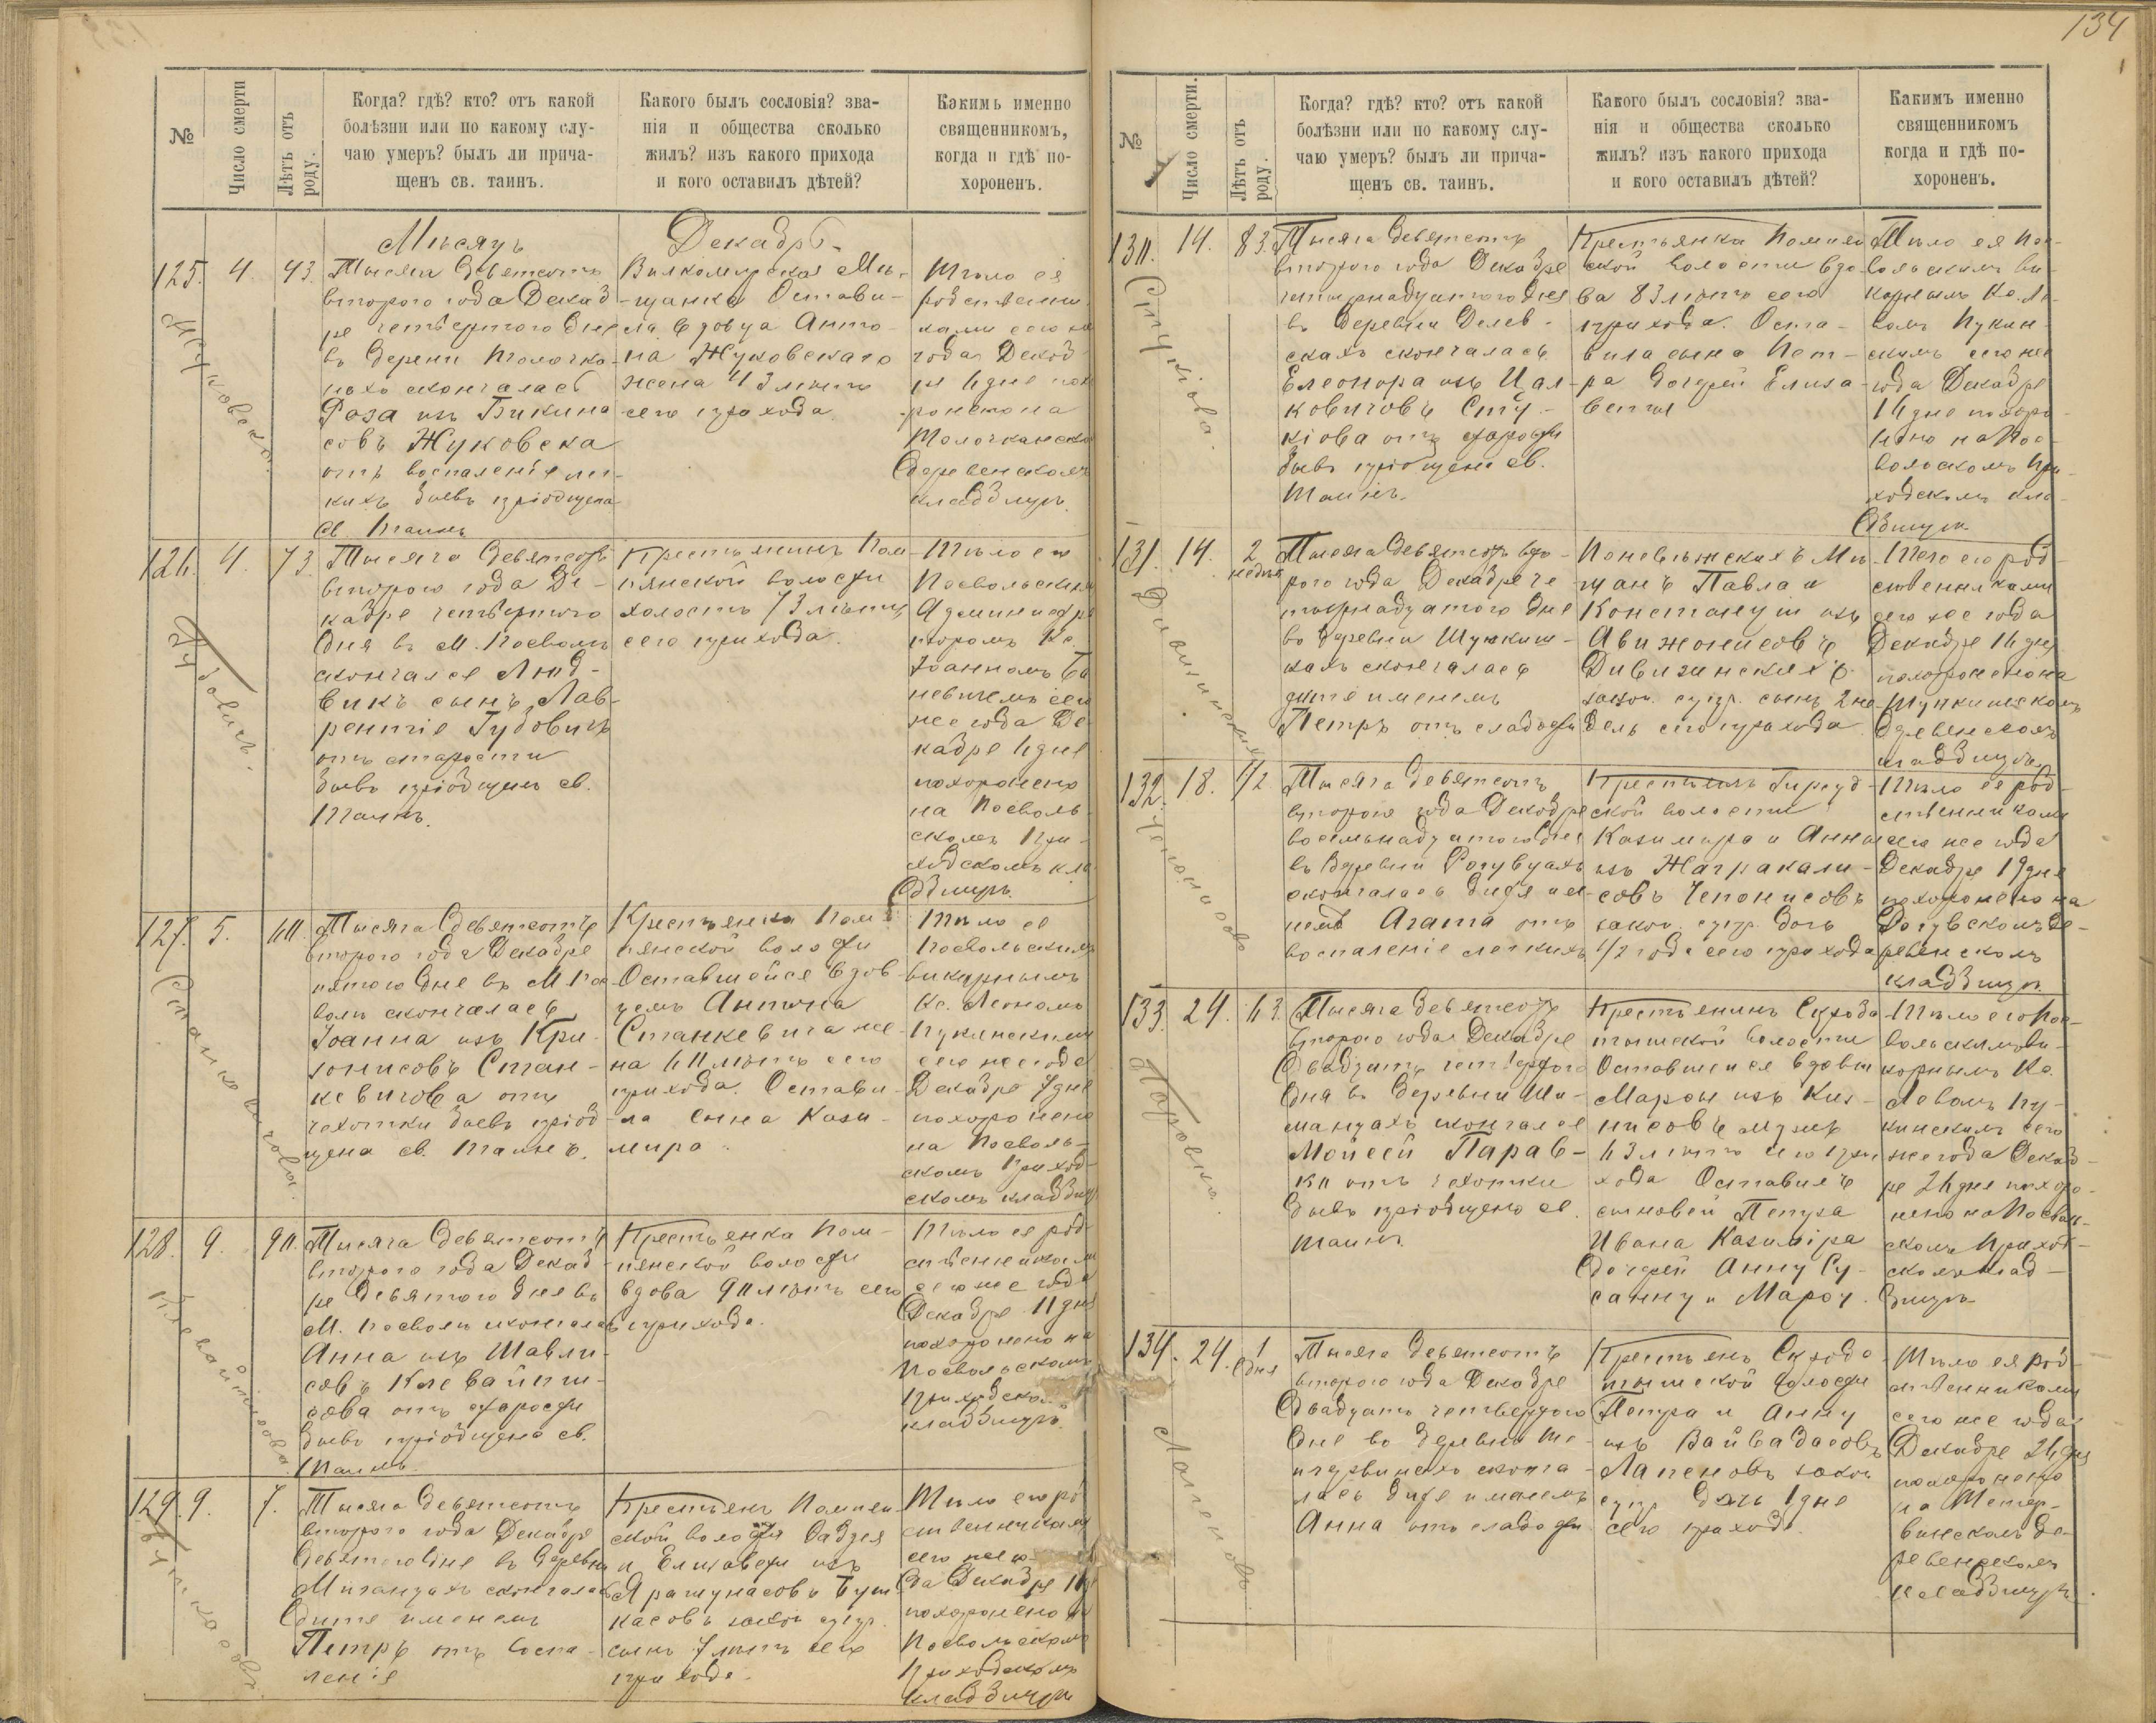 134
№
Число смерти
Лѣтъ отъ роду.
Когда? гдѣ? кто? отъ какой
болѣзни или по какому слу-
чаю умеръ? былъ ли прича-
щенъ св. таинъ.
Какого былъ сословія? зва-
нія и общества сколько
жилъ? изъ какого прихода
и кого оставилъ дѣтей?
Какимъ именно
священникомъ,
когда и гдѣ по-
хороненъ.
Мѣсяцъ
Декабрь
125.
4.
43.
Жуковска.
Тысяча девятсотъ
второго года Декаб-
ре четвертого дне
въ дерени Толочка-
нахъ скончалась
Роза изъ Бикина-
совъ Жуковска
отъ воспаленіе лег-
кихъ бывъ пріобщена
св. Таинъ
Вилкомирская Мѣ-
щанка Остави-
ла вдовца Анто-
на Жуковскаго
жена 43 лѣтъ
сего прихода.
Тѣло ея
родственни-
ками сего же
года Декаб-
ре 6 дне похо-
ронено на
Толочканском
деревенскомъ
кладбищѣ.
126.
4.
73.
Гудовичъ.
Тысяча девятсотъ
второго года Де-
кабре четвертого
дня въ М. Посволь
скончался Люд-
викъ сынъ Лав-
рентіе Гудовичъ
отъ старости
бывъ пріобщенъ св.
Таинъ.
Крестьянинъ Пом-
пянской волости
холостъ 73 лѣтъ
сего прихода.
Тѣло его
Посвольскимъ
Администра-
торомъ Кс.
Іоанномъ
сего
же года Де-
кабре 6 дне
похоронено
на Посволь-
скомъ При-
ходскомъ кла-
дбищѣ.
127.
5.
60.
Станкевичова.
Тысяча девятсотъ
второго года Декабре
пятого дне въ М. Пос-
воль скончалась
Іоанна изъ Кри-
хонисовъ Стан-
кевичова отъ
чехотки бывъ пріоб-
щена св. Таинъ.
Крестьянка Пом-
пянской волости
Оставшейся вдов-
цемъ Антона
Станкевича же-
на 60 лѣтъ сего
прихода. Остави-
ла сына Кази-
мира.
Тѣло ее
Посвольскимъ
викарнымъ
Кс. Леономъ
Пукинскимъ
сего же года
Декабре 7 дне
похоронено
на Посволь-
скомъ Приход-
скомъ кладбищѣ
128.
9.
90.
Клевайтисова.
Тысяча девятсотъ
второго года Декаб-
ре девятого дне въ
М. Посволь скончалась
Анна изъ Шавли-
совъ Клевайти-
сова отъ старости
бывъ пріобщена св.
Таинъ.
Крестьянка Пом-
пянской волости
вдова 90 лѣтъ сего
прихода.
Тѣло ея род-
ственниками
сего же года
Декабре 11 дне
похоронено на
Посвольскомъ
Приходско
кладбищѣ.
129.
9.
7.
Буткасовъ.
Тысяча девятсотъ
второго года Декабре
девятого дне въ деревни
Мичанцахъ скончалась
дитя именемъ
Петръ отъ воспа-
леніе
Крестьянъ Помпян-
ской волости Фаддея
и Елисаветы изъ
Ярашунасовъ Бут-
касовъ закон. супр.
сынъ 7 лѣтъ сего
прихода.
Тѣло его род-
ственниками
сего же го-
да Декабре
похоронено на
Посвольскомъ
Приходскомъ
кладбищѣ
№
Число смерти.
Лѣтъ отъ роду.
Когда? гдѣ? кто? отъ какой
болѣзни или по какому слу-
чаю умеръ? былъ ли прича-
щенъ св. таинъ.
Какого былъ сословія? зва-
нія и общества сколько
жилъ? изъ какого прихода
и кого оставилъ дѣтей?
Какимъ именно
священникомъ
когда и гдѣ по-
хороненъ.
130.
14.
83.
Стукіова.
Тысяча девятсотъ
второго года Декабре
четырнадцатого дне
въ деревни Делев-
скахъ скончалась
Елеонора изъ Цал-
ковичовъ Сту-
кіова отъ старости
бывъ пріобщена св.
Таинъ.
Крестьянка Помпян-
ской волости вдо-
ва 83 лѣтъ сего
прихода. Оста-
вила сына Пет-
ра дочерей Елиса-
вету
Тѣло ея Пос-
вольскимъ ви-
карнымъ Кс. Ле-
вомъ Пукин-
скимъ сего же
года Декабре
16 дне похоро-
нено на Пос-
вольскомъ При-
ходскомъ кла-
дбищѣ.
131.
14.
2 недѣли
Дивизинскихъ.
Тысяча девятсотъ вто-
рого года Декабре че-
тырнадцатого дне
во деревни Шуккиш-
кахъ скончалась
дитя именемъ
Петръ отъ слабости
Поневѣжскихъ Мѣ-
щанъ Павла и
Констанціи изъ
Авижонисовъ
Дивизинскихъ
закон. супр. сынъ 2 не-
дель сего прихода
Тело его род-
ственниками
сего же года
Декабре 16 дне
похоронено на
деревенскомъ
кладбищѣ.
132.
18.
1/2
Чепонисовъ
Тысяча девятсотъ
второго года Декабре
восемьнадцатого дне
въ деревни Рогувцахъ
скончалась дитя име-
немъ Агата отъ
воспаленіе легкихъ
Крестьянъ Гируд-
ской волости
Казимира и Анны
изъ Жагракали-
совъ Чепонисовъ
закон. супр. дочь
1/2 года сего прихода
Тѣло ее род-
ственниками
сего же года
Декабре 19 дне
похоронено на
Рогувскомъ де-
ревенскомъ
кладбищѣ.
133.
24.
63.
Паравка.
Тысяча девятсотъ
второго года Декабре
двадцать четвертого
дня въ деревни Ши-
манцахъ скончался
Мойсей Парав-
ка отъ чехотки
бывъ пріобщено св.
таинъ.
Крестьянинъ Скродо-
тышской волости
Оставшейся вдовы
Мароы изъ Киз-
нисовъ мужъ
63 лѣтъ сего при-
хода Оставилъ
сыновей Петра
Ивана Казиміра
дочерей Анну Су-
санну и Мароу.
Тѣло его Пос-
вольскимъ ви-
карнымъ Кс.
Левомъ Пу-
кинскимъ сего
же года Декаб-
ре 26 дне похоро-
нено на Посволь-
скомъ Приход-
скомъ клад-
бищѣ.
134.
24.
1 дня
Лапеновъ.
Тысяча девятсотъ
второго года Декабре
двадцать четвертого
дне во деревни Те-
скончa-
лась дитя именемъ
Анна отъ слабости
Крестьянъ Скродо-
тышской волости
Петра и Анну
изъ Вайвадасовъ
Лапеновъ закон.
супр. дочь 1 дне
сего прихода.
Тѣло ея род-
ственниками
сего же года
Декабре 26 дня
похоронено
на Тетер-
винскомъ де-
ревенскомъ
кладбищѣ.